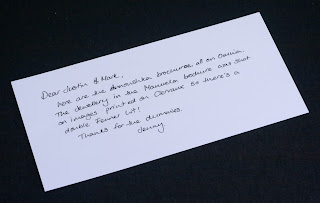 Dear Justin & Mark,
here are the Annoushka brochures all on Oxenia,
The jewellery in the Manuela brochure was shot
on images printed on Oxenaire so there's a
double Fenner Lit!
Thanks for the dummies.
Jenny